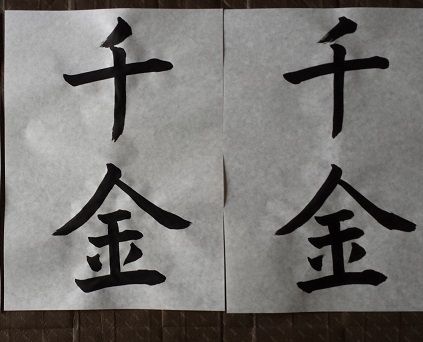 千金
千金